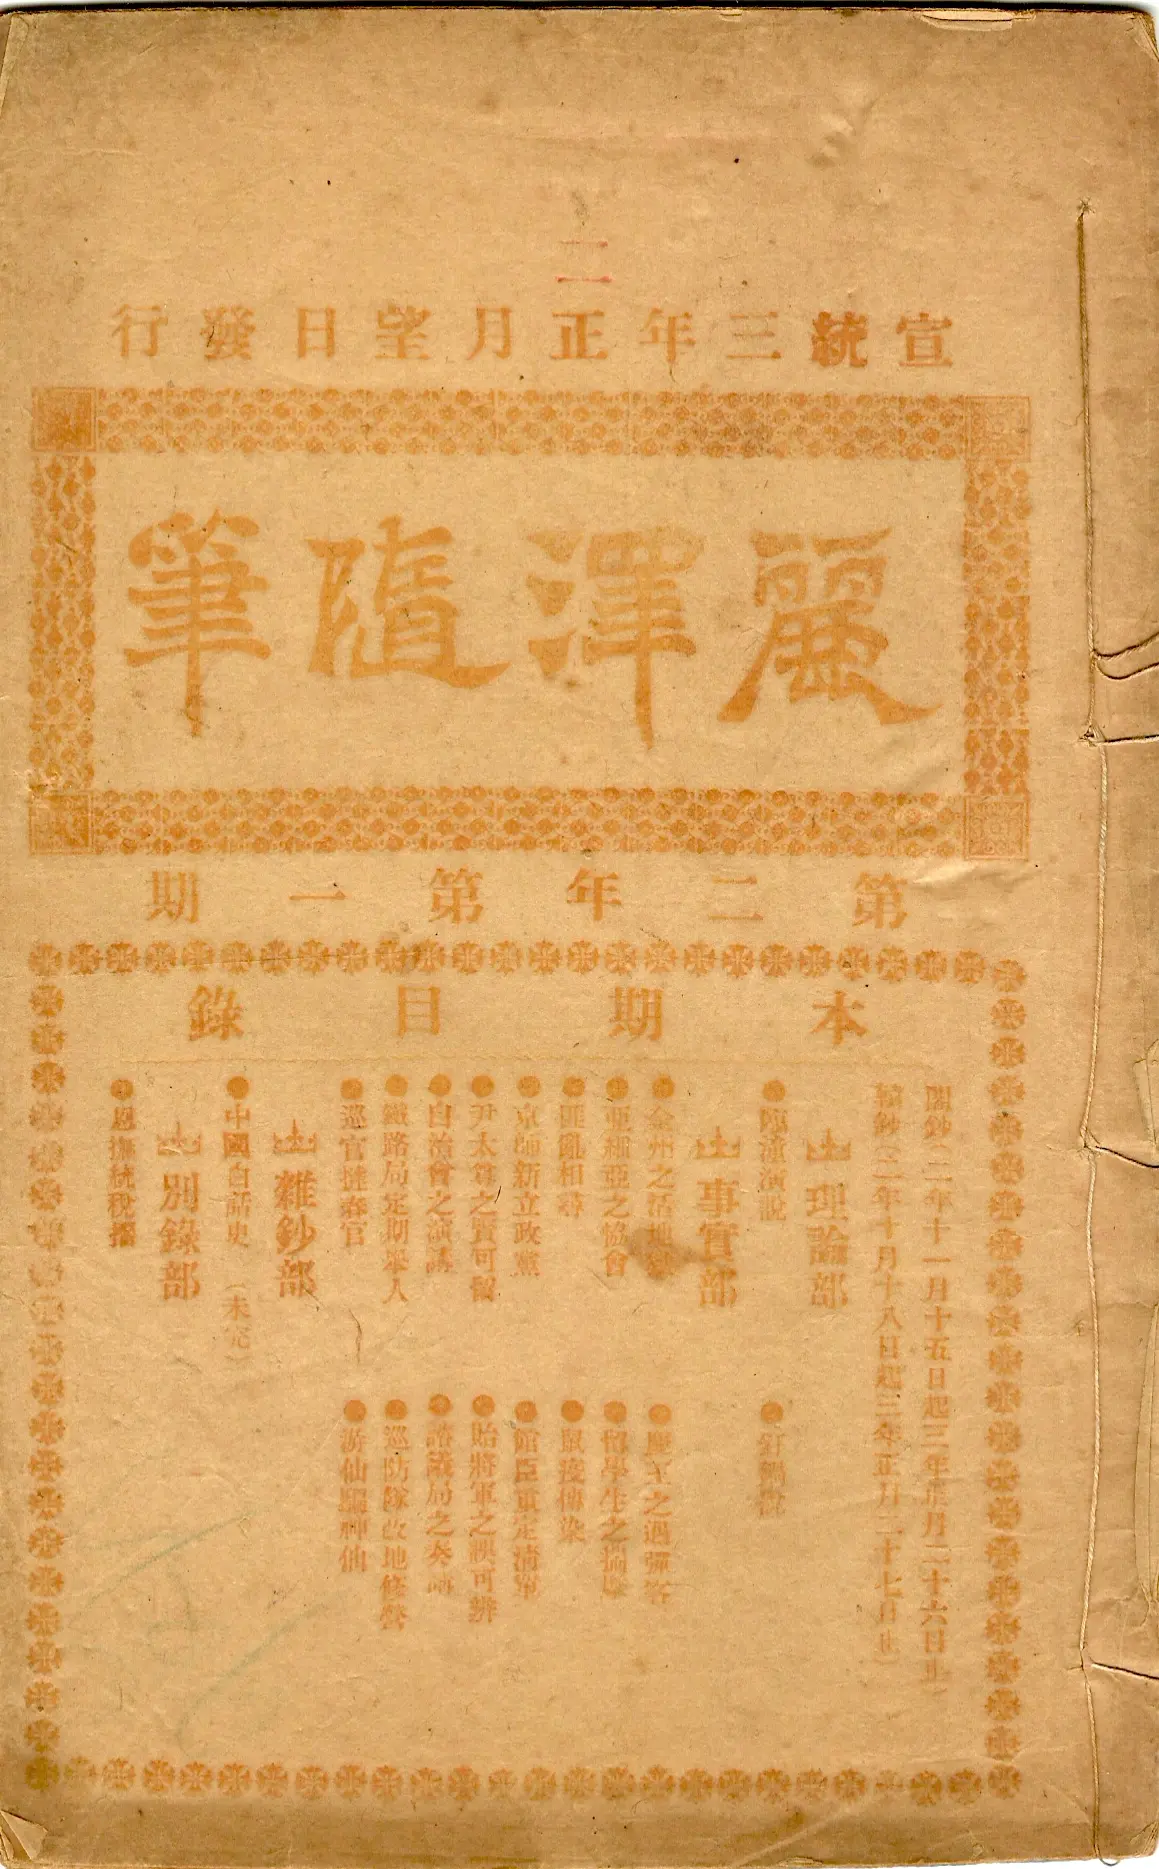 二
宣統三年正月望日發行
麗澤隨筆
第二年第一期
本期目錄
閣鈔(二年十一月十五日起三年正月二十六日止)
轅鈔(二年十月十八日起三年正月二十七日止)
理論部
●臨潼演說
●釘鍋說
事實部
●金州之活地獄
●亞細亞之協會
●留學生之
●匪亂相尋
●鼠疫傳染
●京師新立政黨
●館臣重定清單
●尹太尊之賢可留
●貽將軍之誤可辨
●自治會之演講
●諮議局之奏
●鐵路局定期舉人
●巡防隊改地修營
●巡官撻春官
●游仙驅神仙
雜鈔部
●中國白話史(未完)
別錄部
●恩撫統稅摺